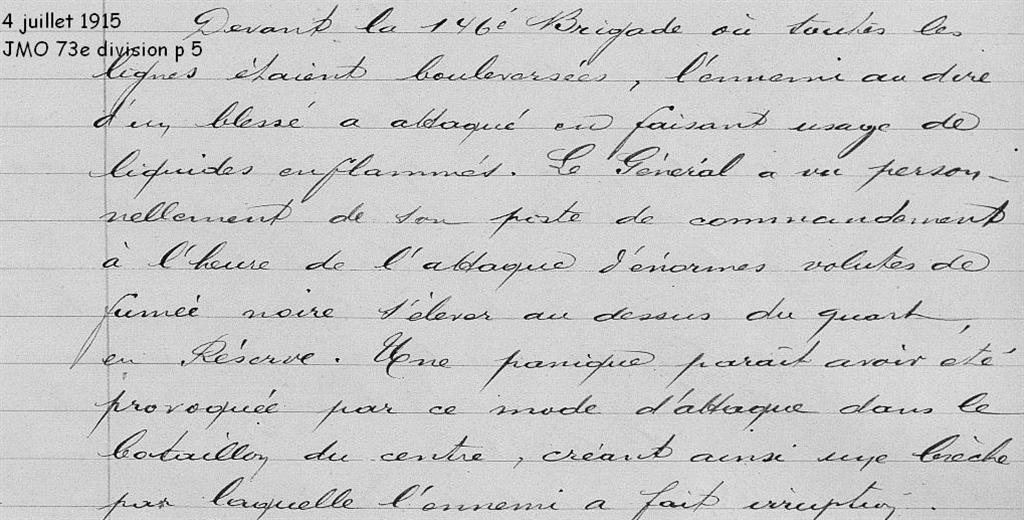 4 juillet 1915
JMO 73e division p 5
Devant la 146e Brigade où toutes les
lignes étaient bouleversées, l'ennemi au dire
d'un blessé a attaqué en faisant usage de
liquides enflammés. Le Général a vu person-
nellement de son poste de commandement
à l'heure de l'attaque d'énormes volutes de
fumée noire s'élever au dessus du quart
en Réserve. Une panique paraît avoir été
provoquée par ce mode d'attaque dans le
bataillon du centre, créant ainsi une brèche
par laquelle l'ennemi a fait irruption.